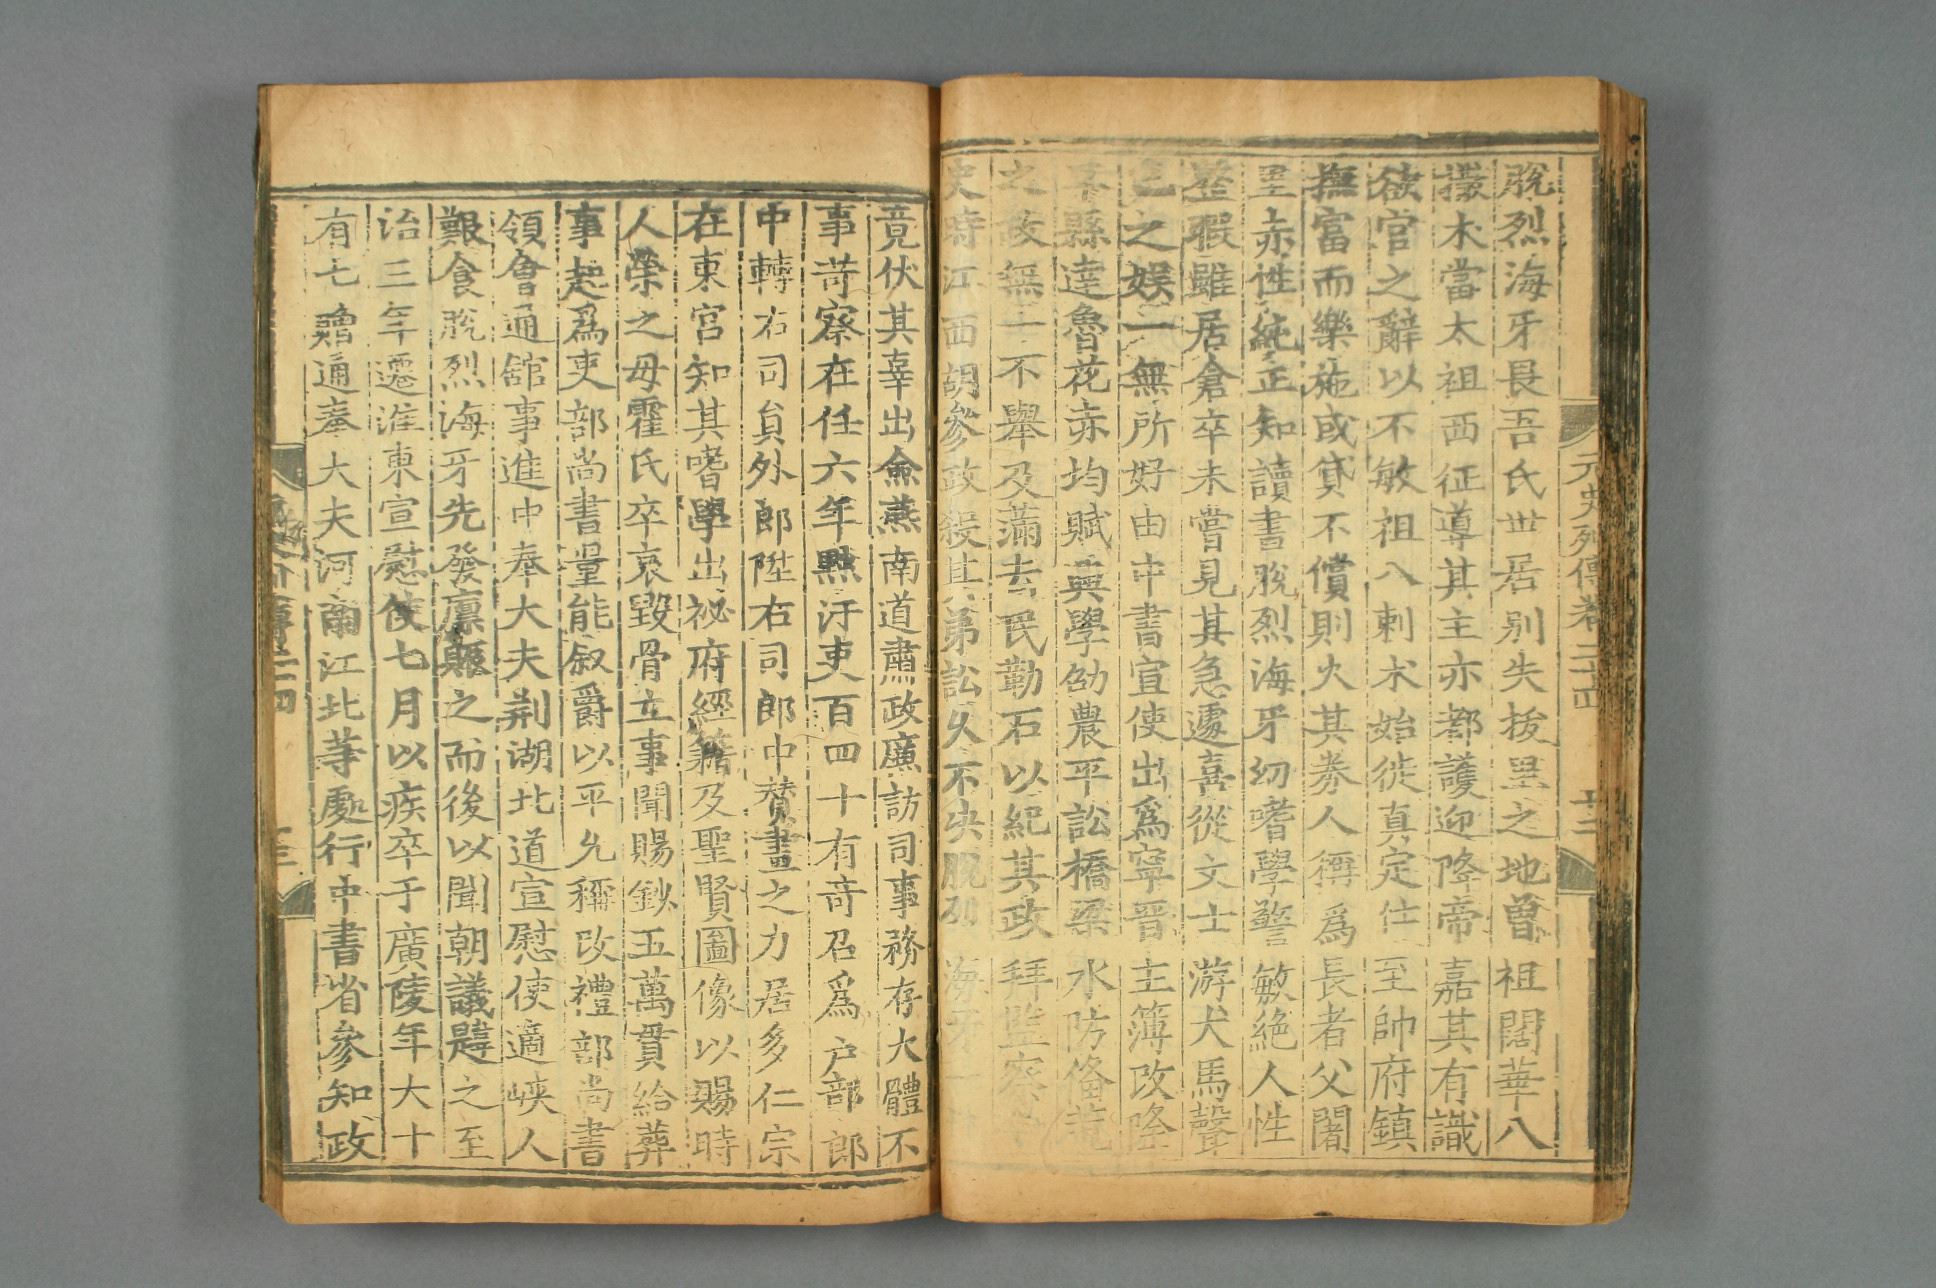 元史列傳卷二十四 十二
脫烈海牙畏吾氏世居別失拔里之地曾祖闊華八
撒朮當太祖西征導其主亦都護迎降帝嘉其有識
欲官之辭以不敏祖八剌朮始徙真定仕至帥府鎮
撫富而樂施或貸不償則火其券人稱爲長者父闍
里赤性純正知讀書脫烈海牙幼嗜學警敏絶人性
整暇雖居倉卒未嘗見其急遽喜從文士游犬馬聲
色之娛一無所好由中書宣使出爲寧晉主簿改隆
平縣達魯花赤均賦興學劭農平訟橋梁水防備荒
之政無一不舉及滿去民勒石以紀其政拜監察
史時江西胡參政殺其弟訟久不決脫列海牙一
竟伏其辜出僉燕南道肅政廉訪司事務存大體不
事苛察在任六年黜汙吏百四十有奇召爲户部郎
中轉右司員外郎陞右司郎中贊畫之力居多仁宗
在東宮知其嗜學出祕府經籍及聖賢圖像以賜時
人榮之母霍氏卒哀毀骨立事聞賜鈔五萬貫給葬
事起爲吏部尚書量能叙爵以平允稱改禮部尚書
領會通館事進中奉大夫荆湖北道宣慰使適峽人
艱食脫烈海牙先發廪賑之而後以聞朝議韙之至
治三年遷淮東宣慰使七月以疾卒于廣陵年六十
有七贈通奉大夫河南江北等處行中書省參知政